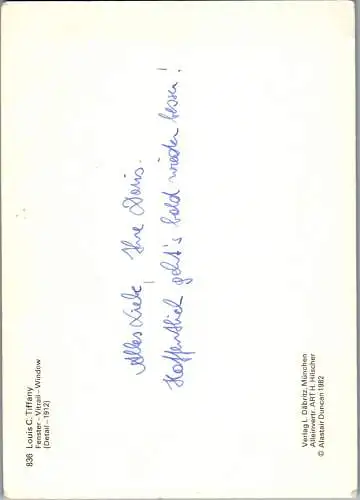 Alles Liebe, Ihre Doris.
Hoffentlich geht's bald wieder besser!
836 Louis C. Tiffany
Fenster – Vitrail – Window
(Detail – 1912)
Verlag L. Däbritz, München
Alleinvertr. ART H. Hilscher
© Alastair Duncan 1982